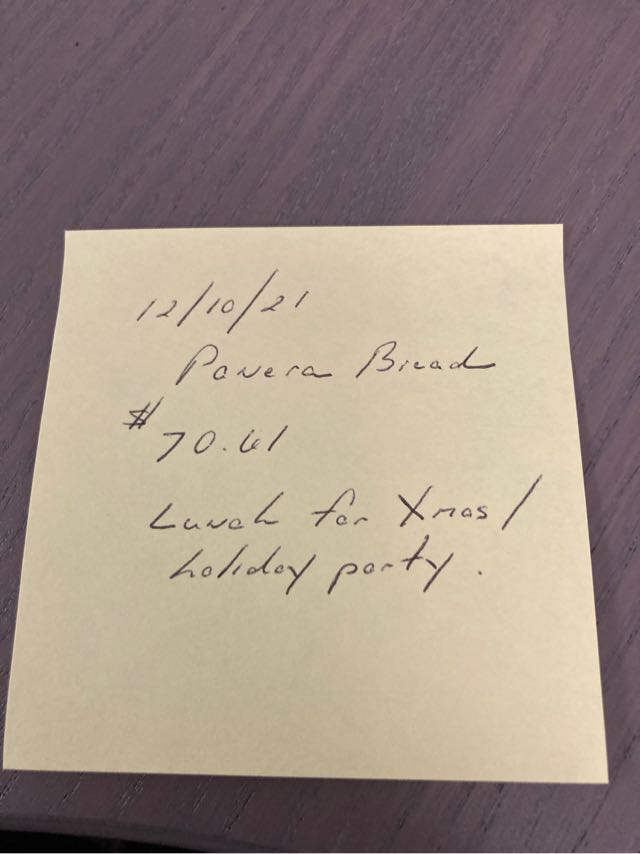 12/10/21
Panera Bread
$70.61
Lunch for Xmas/
holiday party.